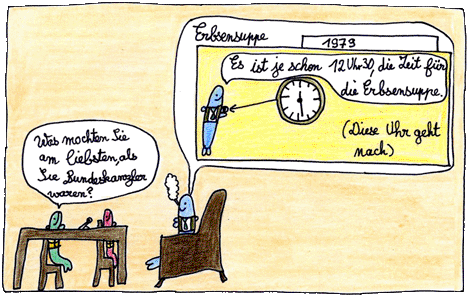 Erbsensuppe
1973
Es ist je schon 12 Uhr 30, die Zeit für
die Erbsensuppe.
(Diese Uhr geht
nach)
Was mochten Sie
am liebsten, als
Sie Bundeskanzler
waren?